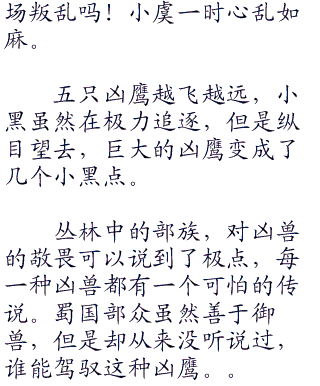 场叛乱吗！小虞一时心乱如
麻。
五只凶鹰越飞越远，小
黑虽然在极力追逐，但是纵
目望去，巨大的凶鹰变成了
几个小黑点。
丛林中的部族，对凶兽
的敬畏可以说到了极点，每
一种凶兽都有一个可怕的传
说。蜀国部众虽然善于御
兽，但是却从来没听说过，
谁能驾驭这种凶鹰。。